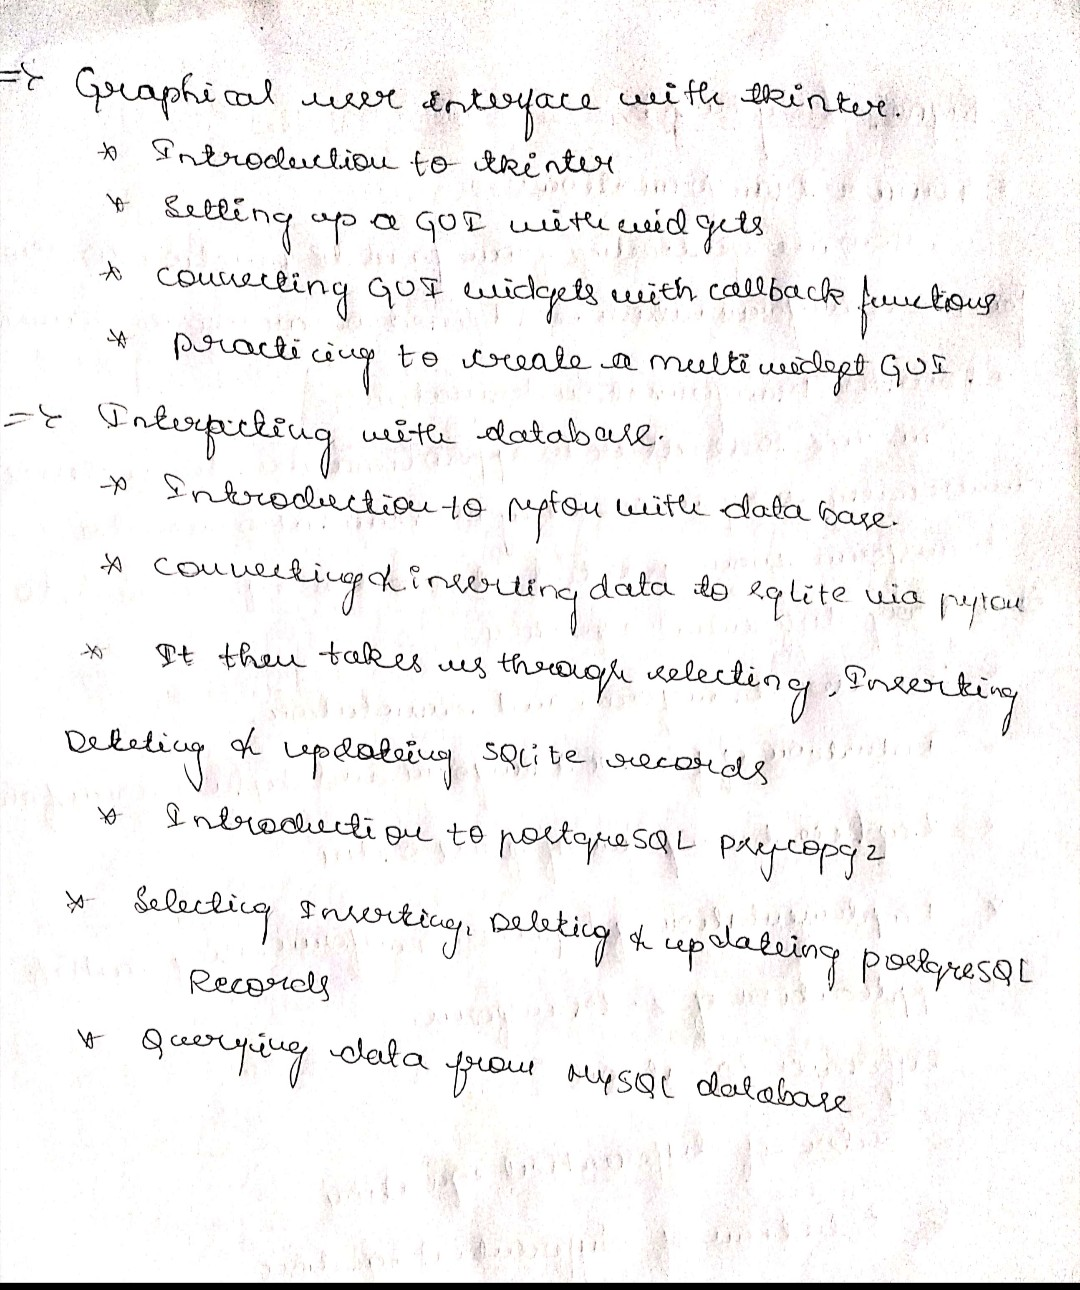 => Graphical user interface with tkinter.
* Introduction to tkinter
* Setting up a GUI with widgets
* connecting GUI widgets with callback functions
* practicing to create a multi widget GUI.
=> Interfacting with database.
* Introduction to pyton with data base.
* connecting & inserting data to sqlite via pyton
* It then takes us through selecting, Inserting
Deleting & updateing SQLite records
* Introduction to postgreSQL psycopg2
* Selecting Inserting, Deleting & updateing postgreSQL
Records
* Querying data from MySQL database